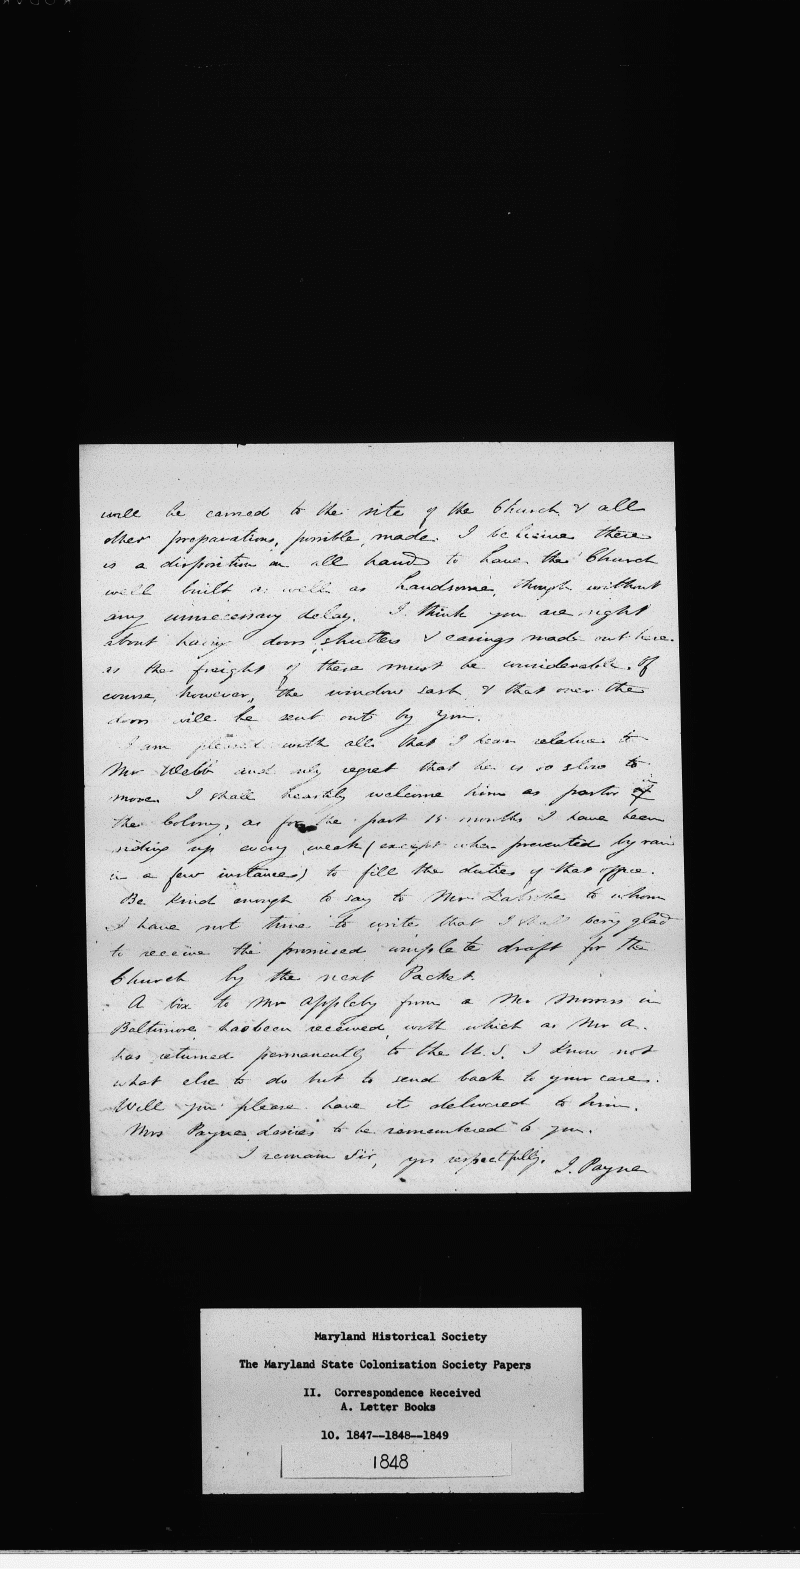 will be carried to the site of the Church & all
other preparations, possible, made. I believe there
is a disposition on all hands to have the Church
well built as well as handsome, though without
any unnecessary delay. I think you are right
about having doors, shutters & casings made out here
as the freight of these must be considerable. Of
course, however, the window sash & that over the
doors will be sent out by you.
I am pleased with all that I hear relative to
Mr Webb and only regret that he is so slow to
move. I shall heartily welcome him as pastor in
the Colony, as for the past 15 months I have been
riding up every week (except when prevented by rain
in a few instances) to fill the duties of that office.
Be kind enough to say to Mr. to whom
I have not time to write that I shall be glad
to receive the promised complete draft for the
Church by the next Packet.
A box to Mr Appleby from a Mr Morris in
Baltimore has been received, with which as Mr A.
has returned permanently to the U.S. I know not
what else to do but to send back to your care.
Will you please have it delivered to him.
Mrs Payne desires to be remembered to you.
I remain Sir, yrs respectfully. J. Payne
Maryland Historical Society
The Maryland State Colonization Society Papers
II. Correspondence Received
A. Letter Books
10. 1847--1848--1849
1848